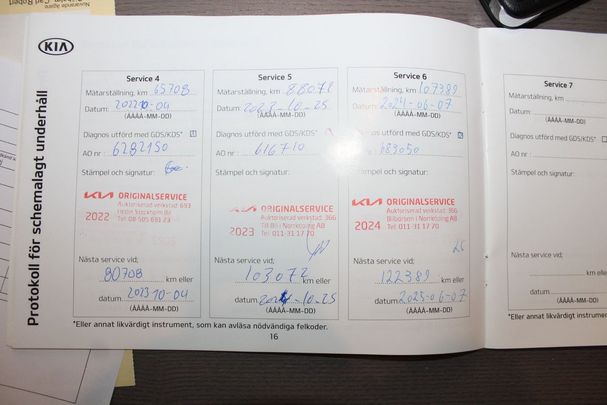 KIA
Protokoll för schemalagt underhåll
Service 4
Mätarställning, km 65708
Datum: 2022 10-04
(ÅÅÅÅ-MM-DD)
Diagnos utförd med GDS/KDS*
AO nr : 6282150
Stämpel och signatur:
KIA ORIGINALSERVICE
Auktoriserad verkstad 693
2022
Tel 08-505 691 23
Nästa service vid;
80708 km eller
datum 2023 10-04
(ÅÅÅÅ-MM-DD)
Service 5
Mätarställning, km 88072
Datum: 2023-10-25
(ÅÅÅÅ-MM-DD)
Diagnos utförd med GDS/KDS*
AO nr : 616710
Stämpel och signatur:
KIA ORIGINALSERVICE
Auktoriserad verkstad 366
2023
Till Bil i Norrköping AB
Tel 011-31 17 70
Nästa service vid;
103072 km eller
datum 2024-10-25
(ÅÅÅÅ-MM-DD)
Service 6
Mätarställning, km 107389
Datum: 2024-06-07
(ÅÅÅÅ-MM-DD)
Diagnos utförd med GDS/KDS*
AO nr : 689050
Stämpel och signatur:
KIA ORIGINALSERVICE
Auktoriserad verkstad 366
2024
Bilbörsen i Norrköping AB
Tel 011-31 17 70
Nästa service vid;
122389 km eller
datum 2025-06-07
(ÅÅÅÅ-MM-DD)
Service 7
Mätarställning, km
Datum:
(ÅÅÅÅ-MM-DD)
Diagnos utförd med GDS/KD
AO nr :
Stämpel och signatur:
Nästa service vid;
km
datum
(ÅÅÅÅ-MM-DD
*Eller annat likvärdigt instrument, som kan avläsa nödvändiga felkoder.
*Eller annat likvärdigt instrumen
16